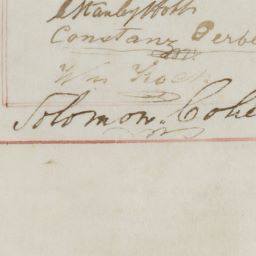 Stanley Hoth
Constanz Berbe
Wm Koch
Solomon Cohe